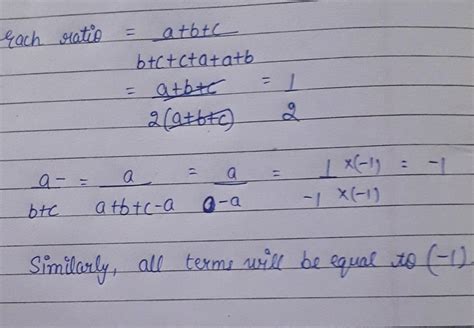 Each ratio = a+b+c
b+c+c+a+a+b
= a+b+c = 1
2(a+b+c) 2
a- = a = a = 1 ×(-1) = -1
b+c a+b+c-a 0-a -1 ×(-1)
Similarly, all terms will be equal to (-1).